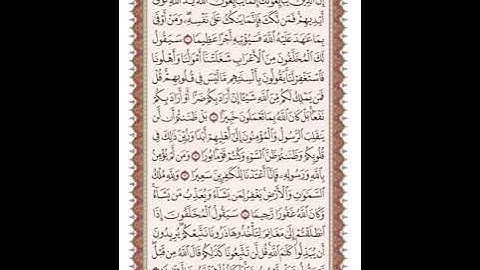 إِنَّ ٱلَّذِينَ يُبَايِعُونَكَ إِنَّمَا يُبَايِعُونَ ٱللَّهَ يَدُ ٱللَّهِ فَوْقَ
أَيْدِيهِمْ فَمَن نَّكَثَ فَإِنَّمَا يَنكُثُ عَلَىٰ نَفْسِهِۦ وَمَنْ أَوْفَىٰ
بِمَا عَٰهَدَ عَلَيْهُ ٱللَّهَ فَسَيُؤْتِيهِ أَجْرًا عَظِيمًا سَيَقُولُ
لَكَ ٱلْمُخَلَّفُونَ مِنَ ٱلْأَعْرَابِ شَغَلَتْنَآ أَمْوَٰلُنَا وَأَهْلُونَا
فَٱسْتَغْفِرْ لَنَا يَقُولُونَ بِأَلْسِنَتِهِم مَّا لَيْسَ فِى قُلُوبِهِمْ قُلْ
فَمَن يَمْلِكُ لَكُم مِّنَ ٱللَّهِ شَيْـًٔا إِنْ أَرَادَ بِكُمْ ضَرًّا أَوْ أَرَادَ بِكُمْ
نَفْعًۢا بَلْ كَانَ ٱللَّهُ بِمَا تَعْمَلُونَ خَبِيرًۢا بَلْ ظَنَنتُمْ أَن لَّن
يَنقَلِبَ ٱلرَّسُولُ وَٱلْمُؤْمِنُونَ إِلَىٰٓ أَهْلِيهِمْ أَبَدًا وَزُيِّنَ ذَٰلِكَ فِى
قُلُوبِكُمْ وَظَنَنتُمْ ظَنَّ ٱلسَّوْءِ وَكُنتُمْ قَوْمًۢا بُورًا وَمَن لَّمْ يُؤْمِنۢ
بِٱللَّهِ وَرَسُولِهِۦ فَإِنَّآ أَعْتَدْنَا لِلْكَٰفِرِينَ سَعِيرًا وَلِلَّهِ مُلْكُ
ٱلسَّمَٰوَٰتِ وَٱلْأَرْضِ يَغْفِرُ لِمَن يَشَآءُ وَيُعَذِّبُ مَن يَشَآءُ
وَكَانَ ٱللَّهُ غَفُورًا رَّحِيمًا سَيَقُولُ ٱلْمُخَلَّفُونَ إِذَا
ٱنطَلَقْتُمْ إِلَىٰ مَغَانِمَ لِتَأْخُذُوهَا ذَرُونَا نَتَّبِعْكُمْ يُرِيدُونَ
أَن يُبَدِّلُوا۟ كَلَٰمَ ٱللَّهِ قُل لَّن تَتَّبِعُونَا كَذَٰلِكُمْ قَالَ ٱللَّهُ مِن قَبْلُ